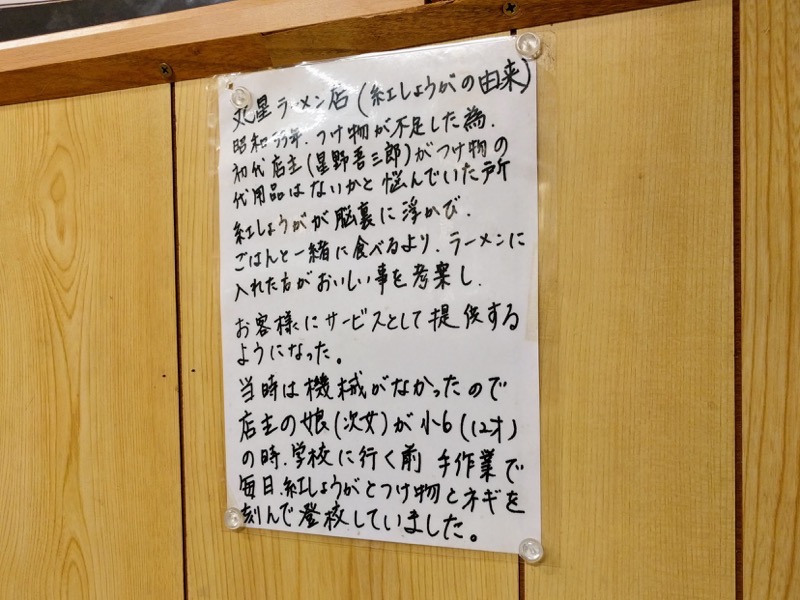 丸星ラーメン店(紅しょうがの由来)
昭和33年、つけ物が不足した為、
初代店主(星野吾三郎)がつけ物の
代用品はないかと悩んでいた所
紅しょうがが脳裏に浮かび、
ごはんと一緒に食べるより、ラーメンに
入れた方がおいしい事を考案し、
お客様にサービスとして提供する
ようになった。
当時は機械がなかったので
店主の娘(次女)が小6(12才)
の時、学校に行く前 手作業で
毎日、紅しょうがとつけ物とネギを
刻んで登校していました。